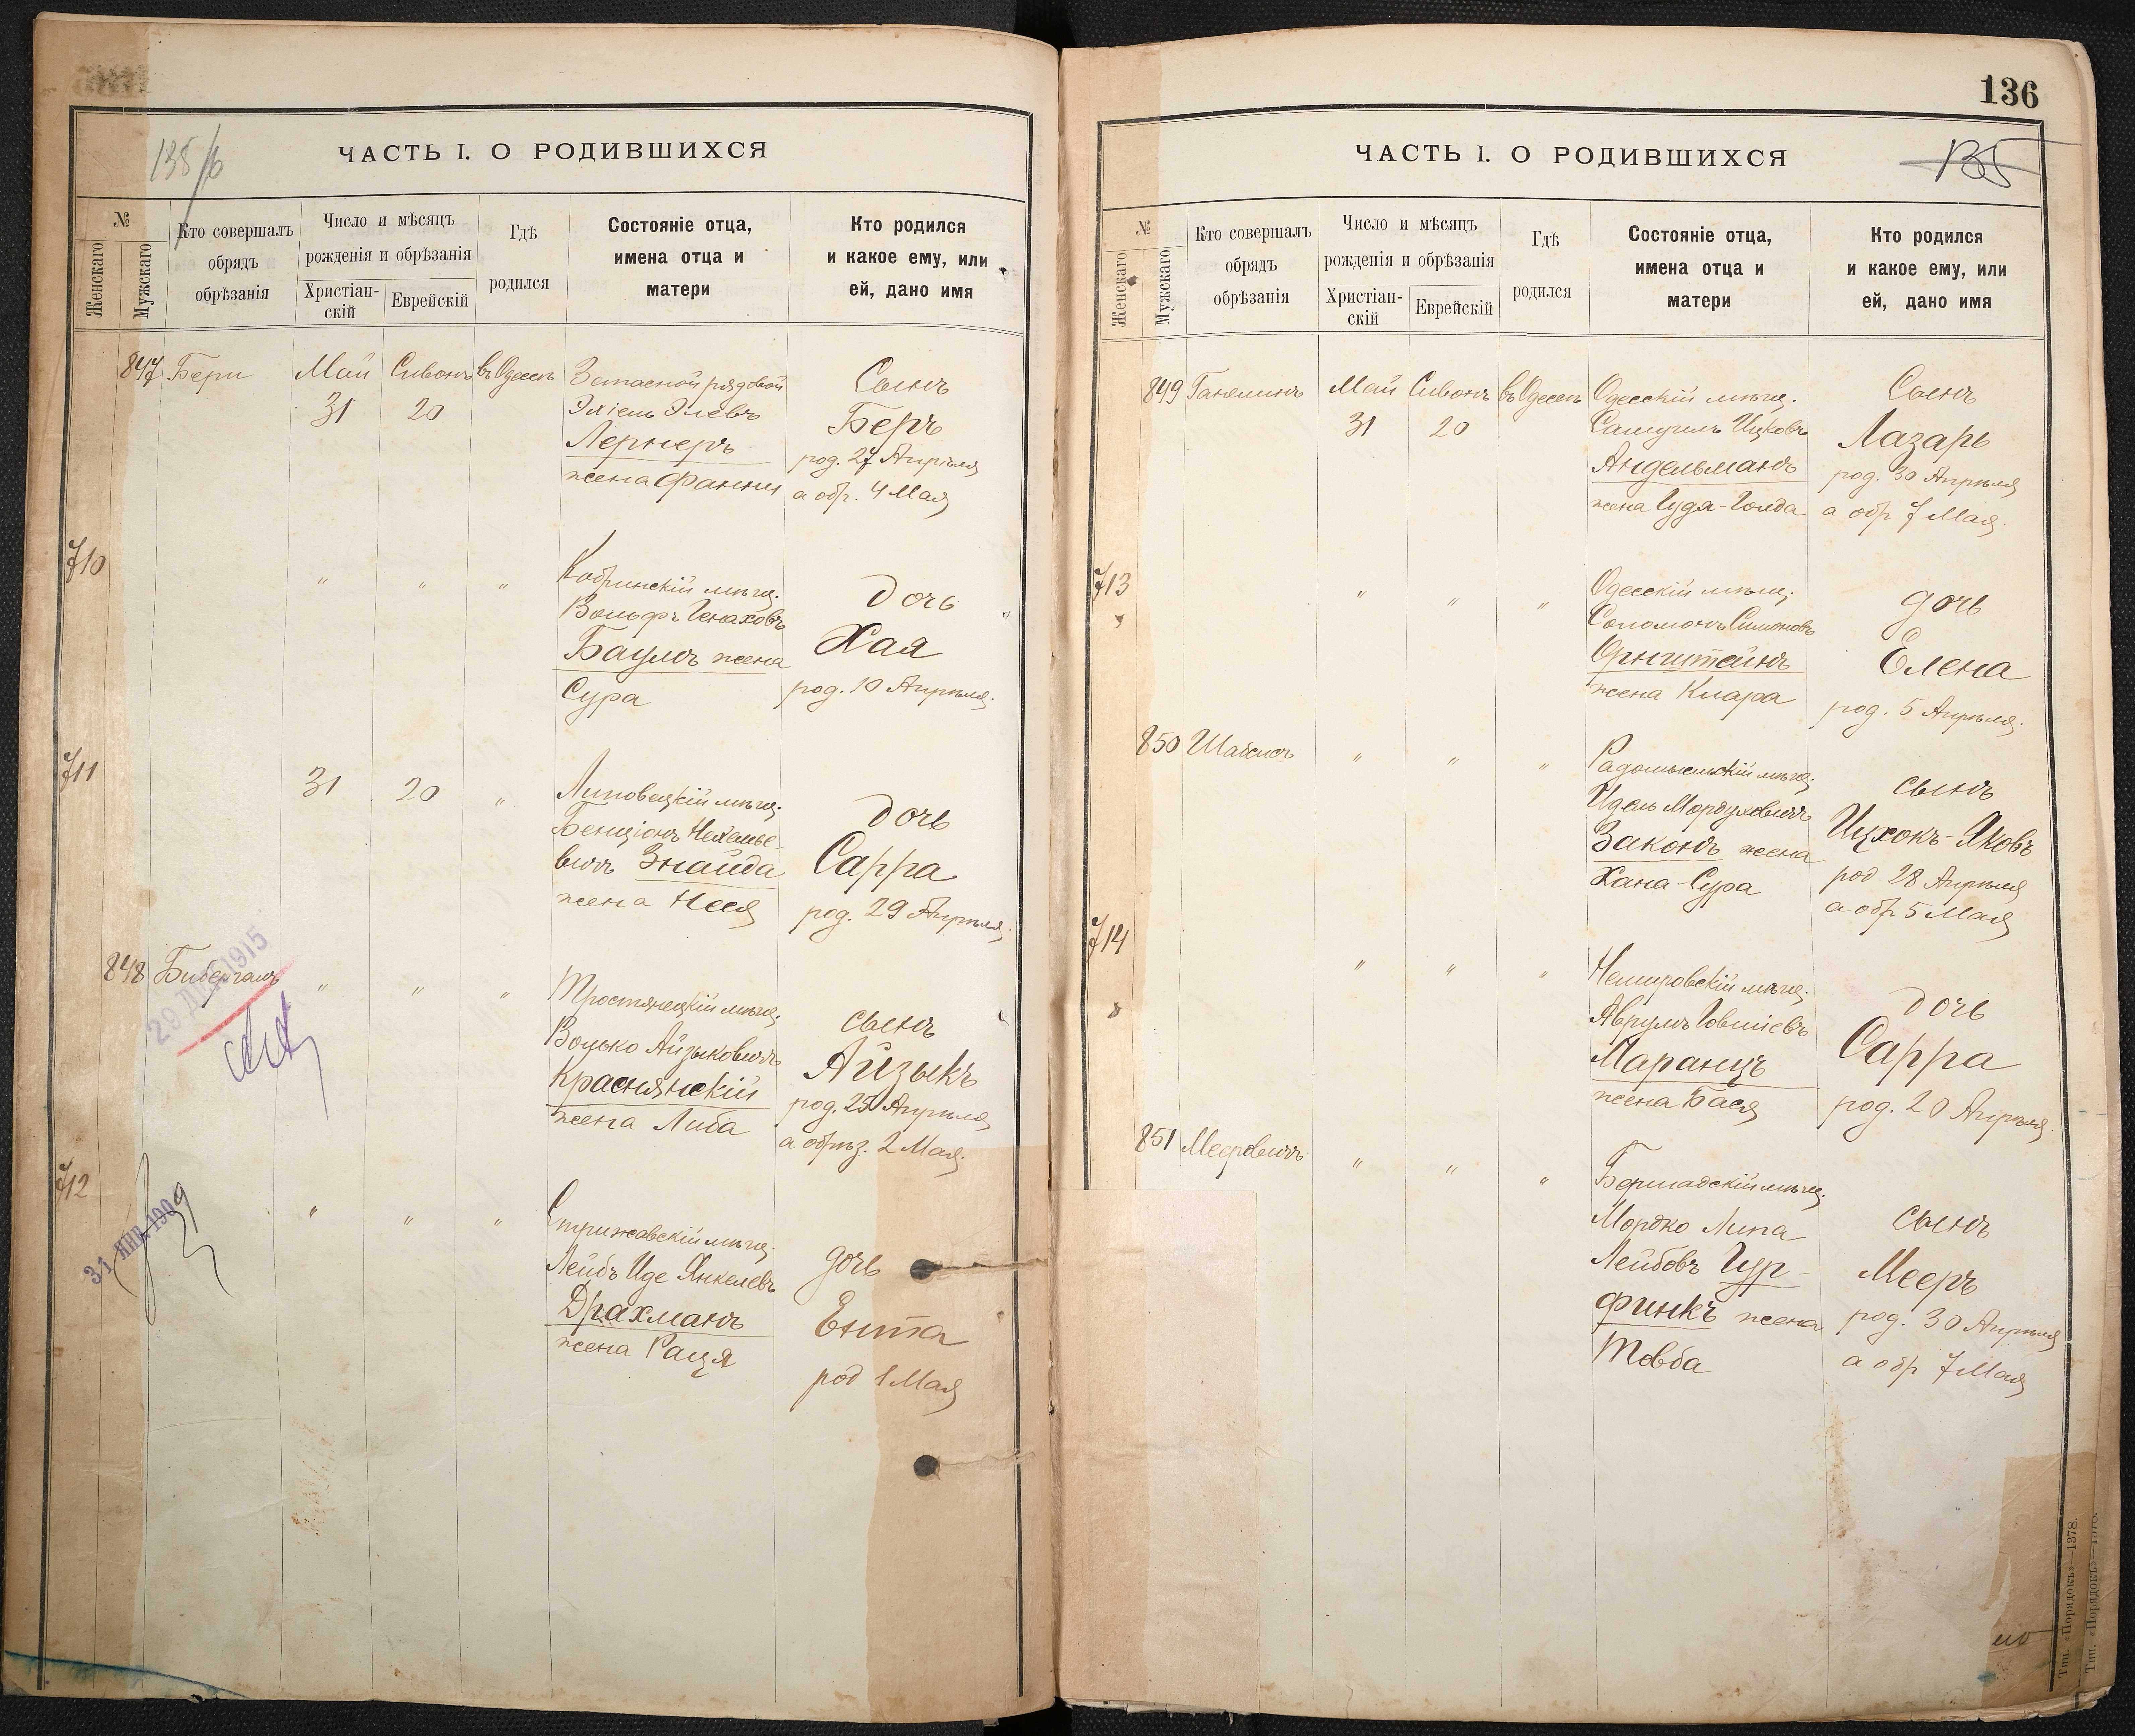 135/б
ЧАСТЬ I. О РОДИВШИХСЯ
№
Женскаго
Мужскаго
Кто совершалъ
обрядъ
обрѣзанія
Число и мѣсяцъ
рожденія и обрѣзанія
Христіан-
скій
Еврейскій
Гдѣ
родился
Состояніе отца,
имена отца и
матери
Кто родился
и какое ему, или
ей, дано имя
847 Бери Май Сивонъ въ Одессѣ
31 20
Запасной рядовой
Эхіель Элевъ
Лернеръ
жена Фанни
Сынъ
Беръ
род. 27 Апрѣля
а обр. 4 Мая
710 " " "
Кобринскій мѣщ.
Вольфъ Генаховъ
Баумъ жена
Сура
Дочь
Хая
род. 10 Апрѣля.
711 31 20 "
Липовецкій мѣщ.
Бенціонъ Нехемье-
вичъ Знайда
жена Нися
Дочь
Сарра
род. 29 Апрѣля.
848 Бибергалъ " " "
29 1915
Тростянецкій мѣщ.
Волько Айзыковичъ
Краснянскій
жена Либа
сынъ
Айзыкъ
род. 25 Апрѣля
а обрѣз. 2 Мая.
712 " " "
31 1909
Стрижавскій мѣщ.
Лейбъ Иде Янкелевъ
Драхманъ
жена Раця
дочь
Ента
род 1 Мая
136
135
ЧАСТЬ I. О РОДИВШИХСЯ
№
Женскаго
Мужскаго
Кто совершалъ
обрядъ
обрѣзанія
Число и мѣсяцъ
рожденія и обрѣзанія
Христіан-
скій
Еврейскій
Гдѣ
родился
Состояніе отца,
имена отца и
матери
Кто родился
и какое ему, или
ей, дано имя
849 Ганелинъ Май Сивонъ въ Одессѣ
31 20
Одесскій мѣщ.
Самуилъ Ицковъ
Андельманъ
жена Гудя-Голда
Сынъ
Лазарь
род. 30 Апрѣля
а обр 7 Мая.
713 " " "
Одесскій мѣщ.
Соломонъ Симоновъ
Орнштейнъ
жена Клара
дочь
Елена
род. 5 Апрѣля.
850 " " "
Радомысльскій мѣщ.
Идель Мордуховичъ
Законъ жена
Хана-Сура
сынъ
Ицхокъ-Яковъ
род 28 Апрѣля
а обр 5 Мая
714 " " "
Немировскій мѣщ.
Аврумъ Іовшіевъ
Маранцъ
жена Бася
Дочь
Сарра
род. 20 Апрѣля.
851 Мееровичъ " " "
Бершадскій мѣщ.
Мордко Липа
Лейбовъ Гур-
финкъ жена
Товба
сынъ
Мееръ
род. 30 Апрѣля
а обр 7 Мая
Тип. «Порядокъ»—1378.
Тип. «Порядокъ»—1378.